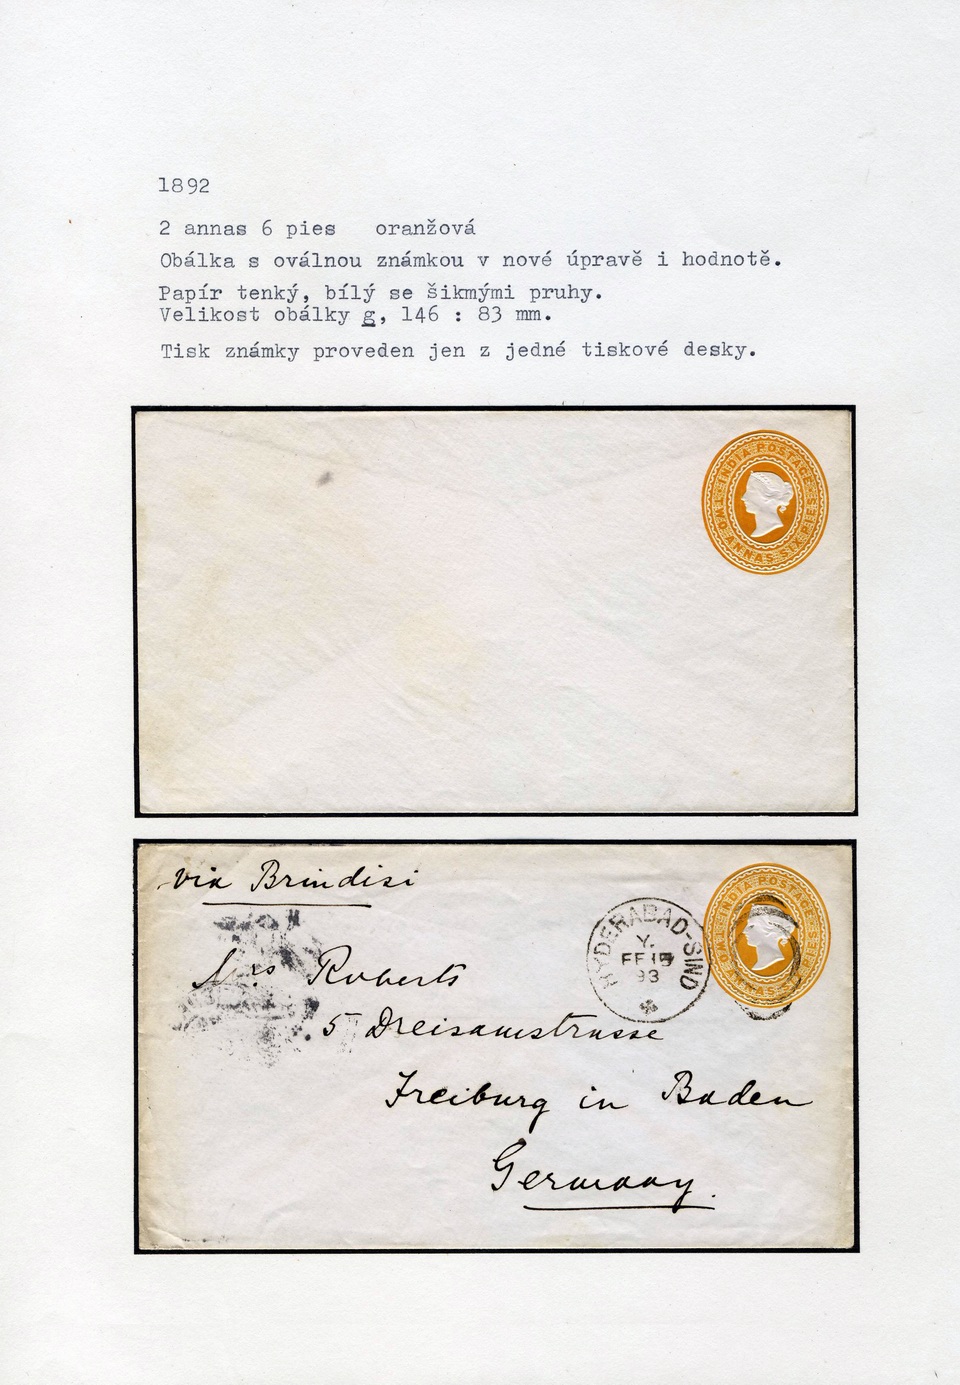 1892
2 annas 6 pies oranžová
Obálka s oválnou známkou v nové úpravě i hodnotě.
Papír tenký, bílý se šikmými pruhy.
Velikost obálky g, 146 : 83 mm.
Tisk známky proveden jen z jedné tiskové desky.
INDIA POSTAGE
ANNAS
via Brindisi
INDIA POSTAGE
HYDERABAD-SIND
Y.
FE 15
93
Mrs Roberts
5 Dreisamstrasse
Freiburg in Baden
Germany.